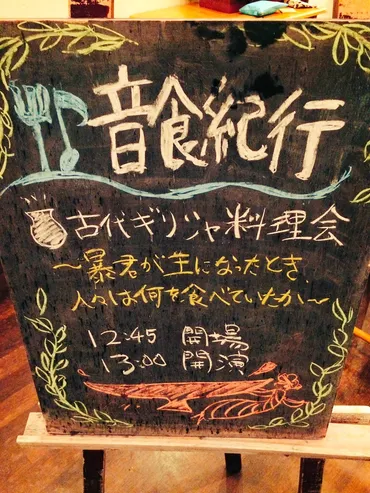 音食紀行
古代ギリシャ料理会
～暴君が主になったとき、
人々は何を食べていたか～
12:45 開場
13:00 開演